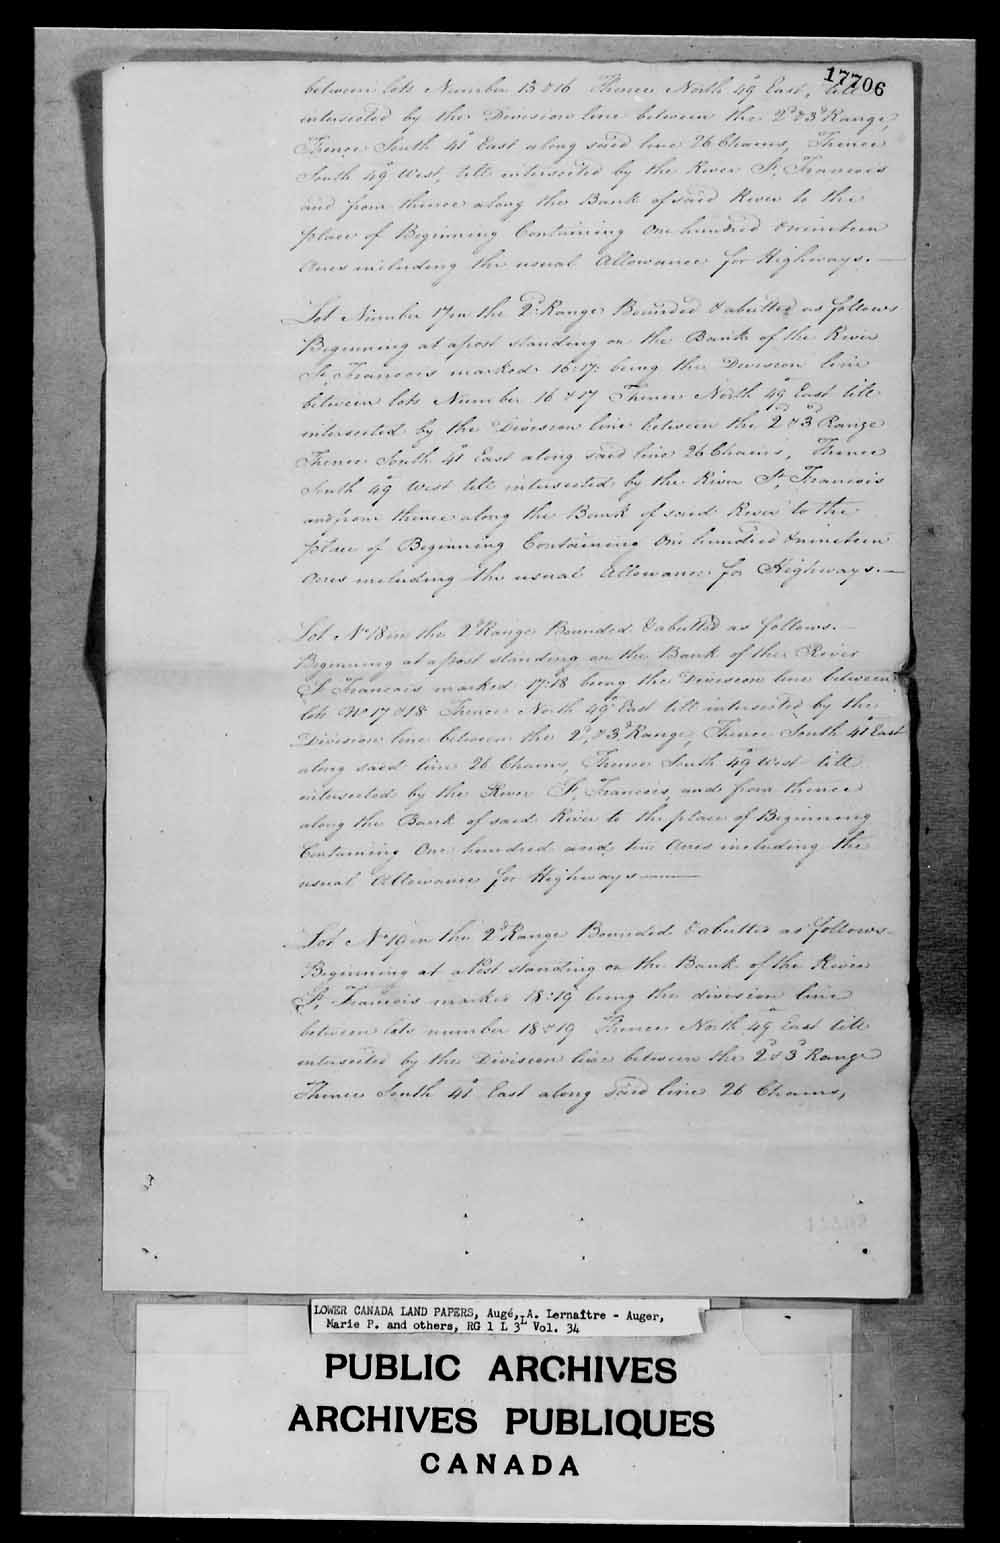 17706
between lots Number 15 & 16 Thence North 49° East, till
intersected by the Division line between the 2d & 3d Range,
Thence South 41° East along said line 26 Chains, Thence
South 49° West, till intersected by the River St. Francois
and from thence along the Bank of said River to the
place of Beginning Containing One hundred & nineteen
Acres including the usual Allowance for Highways.—
Lot Number 17 in the 2d. Range Bounded & abutted as follows
Beginning at a post standing on the Bank of the River
St. Francois marked 16:17: being the Division line
between lots Number 16 & 17 Thence North 49° East till
intersected by the Division line between the 2d & 3d Range
Thence South 41° East along said line 26 Chains, Thence
South 49° West till intersected by the River St. Francois
and from thence along the Bank of said River to the
place of Beginning Containing One hundred & nineteen
Acres including the usual Allowance for Highways.—
Lot No 18 in the 2d Range Bounded & abutted as follows.—
Beginning at a post standing on the Bank of the River
St. Francois marked 17:18 being the Division line between
lots No 17 & 18 Thence North 49° East till intersected by the
Division line between the 2d, & 3d Range, Thence South 41° East
along said line 26 Chains, Thence South 49° West till
intersected by the River St. Francois, and from thence
along the Bank of said River to the place of Beginning
Containing One hundred and ten Acres including the
usual Allowance for Highways—
Lot No 19 in the 2d Range Bounded & abutted as follows—
Beginning at a Post standing on the Bank of the River
St. Francois marked 18:19 being the division line
between lots number 18 & 19 Thence North 49° East till
intersected by the Division line between the 2d & 3d Range
Thence South 41° East along said line 26 Chains,
LOWER CANADA LAND PAPERS, Augé, A. Lernaître - Auger,
Marie P. and others, RG 1 L 3L Vol. 34
PUBLIC ARCHIVES
ARCHIVES PUBLIQUES
CANADA